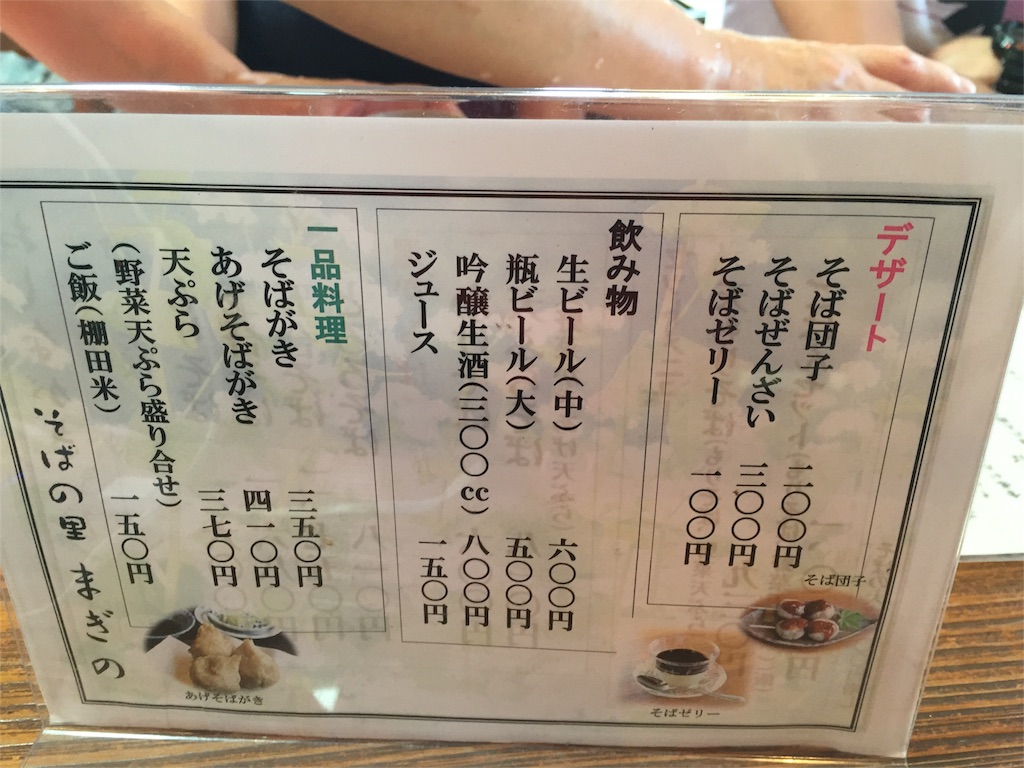 デザート
そば団子 二〇〇円
そばぜんざい 三〇〇円
そばゼリー 一〇〇円
そば団子
飲み物
生ビール(中) 六〇〇円
瓶ビール(大) 五〇〇円
吟醸生酒(三〇〇cc) 八〇〇円
ジュース 一五〇円
そばゼリー
一品料理
そばがき 三五〇円
あげそばがき 四一〇円
天ぷら 三七〇円
(野菜天ぷら盛り合せ)
ご飯(棚田米) 一五〇円
あげそばがき
そばの里 まぎの